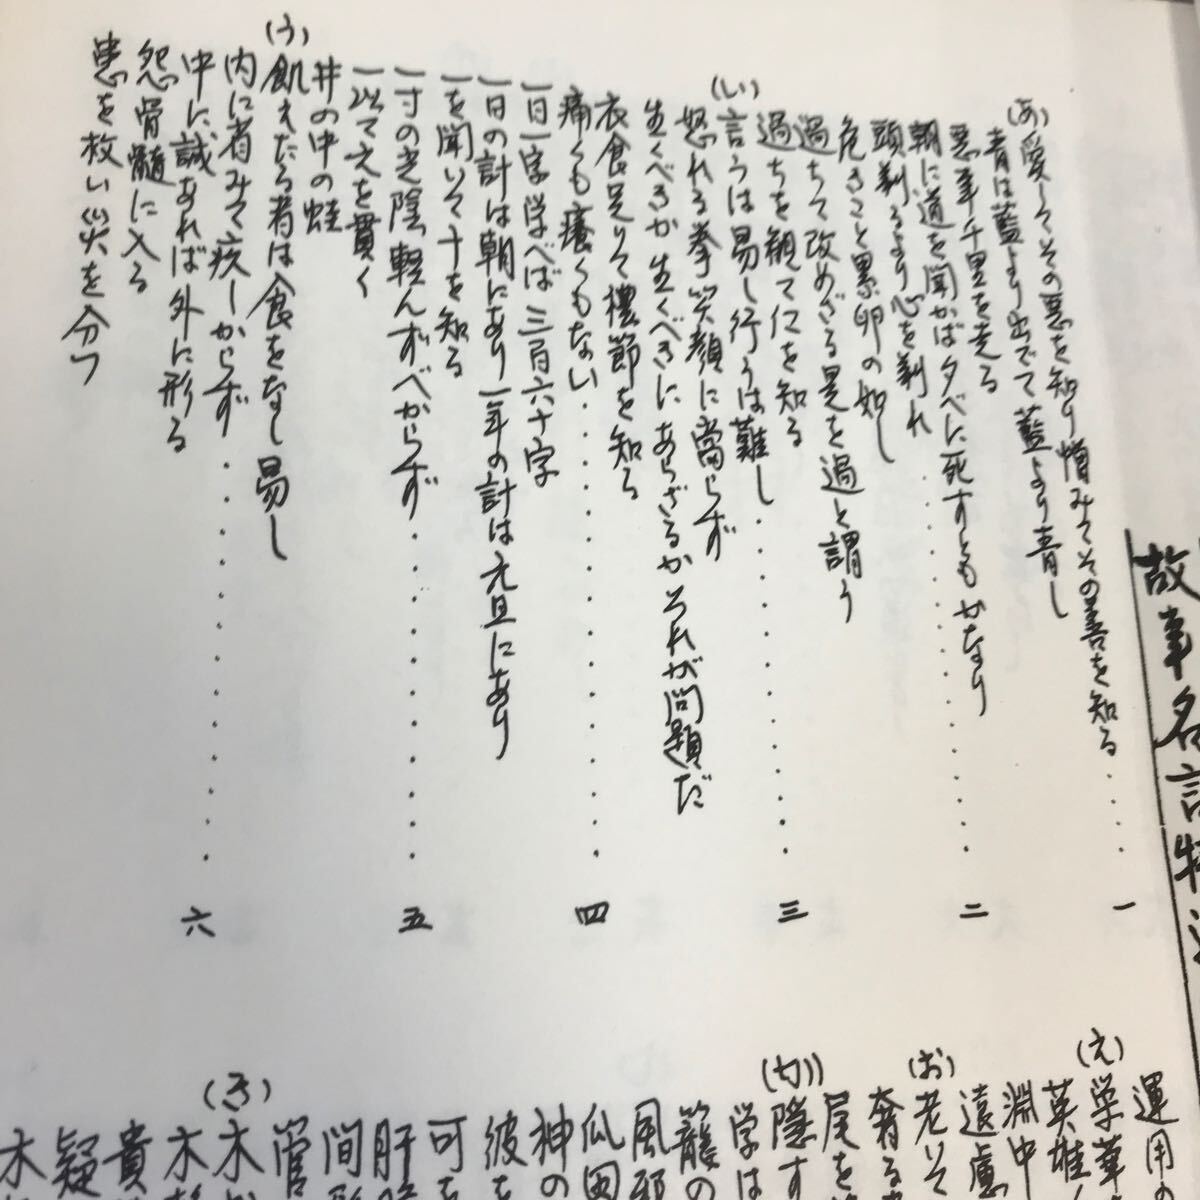 故事名言
(あ)愛してその悪を知り憎みてその善を知る・・・・一
青は藍より出でて藍より青し
悪事千里を走る
朝に道を聞かば夕べに死すともかなり
頭剃るより心を剃れ・・・・・・・・・・・二
危きこと累卵の如し
過ちて改めざる是を過と謂う
過ちを観て仁を知る
(い)言うは易し行うは難し・・・・・・・・・・・三
怒れる拳笑顔に當らず
生くべきか生くべきにあらざるかそれが問題だ
衣食足りて禮節を知る
痛くも癢くもない・・・・・・・・・・・四
一日一字学べば三百六十字
一日の計は朝にあり一年の計は元旦にあり
一を聞いて十を知る
一寸の光陰軽んずべからず・・・・・・・・五
一以て之を貫く
井の中の蛙
(う)飢えたる者は食をなし易し
内に省みて疚しからず・・・・・・・・・・・六
中に誠あれば外に形る
怨骨髄に入る
患を救い災を分つ
運用の
(え)学華
英雄
淵中
遠慮
(お)老いそ
奢る
尾を
(か)隠す
学は
籠の
風邪
瓜田
神の
彼を
可を
肝
間
管
(き)木
木
貴
疑
木